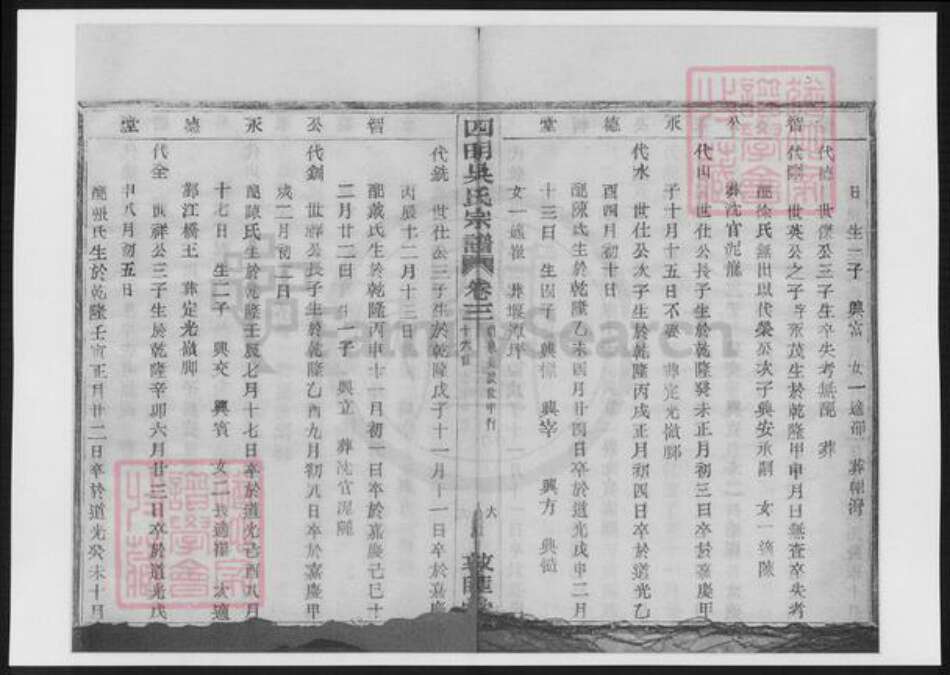 日 生二子 興富 女一適邵 葬
智 代德 世傑公三子生卒失考無配 葬
代剛 世英公之子 茂生於乾隆甲申月日無查卒失考
配徐氏無出以代榮公次子興安承嗣 女一適陳
公 葬沈官泥
代山 世仕公長子生於乾隆癸未正月初三日卒於嘉慶甲
永 子十月十五日不娶 葬定光嶺脚
代水 世仕公次子生於乾隆丙戌正月初四日卒於道光乙
德 酉四月初十日
配陳氏生於乾隆乙未四月廿四日卒於道光戊申二月
堂 十三日 生四子 興標 興宰 興方 興
女一適崔 葬堰潭坪
四明吳氏宗譜 卷三
代銑 世仕公三子生於乾隆戊子十一月十一日卒於嘉慶
丙辰十二月十三日
智 配戴氏生於乾隆丙申十一月初一日卒於嘉慶己巳十
二月廿二日 生一子 興立 葬沈官泥
公 代釗 世祥公長子生於乾隆乙酉九月初八日卒於嘉慶甲
戌二月初三日
永 配陳氏生於乾隆壬辰七月十七日卒於道光己酉八月
十七日 生二子 興交 興賓 女二 長適崔 次適
德 鄞江橋王 葬定光嶺脚
代全 世祥公三子生於乾隆辛卯六月廿三日卒於道光戊
堂 申八月初五日
配張氏生於乾隆壬寅正月廿二日卒於道光癸未十月
FamilySearch